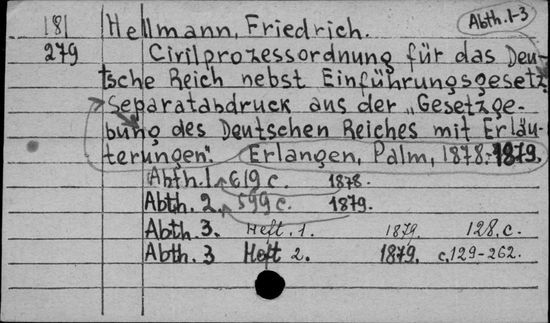 Abth. 1-3
181 Hellmann, Friedrich.
279 Civilprozessordnung für das Deu-
tsche Reich nebst Einführungsgesetz.
Separatabdruck aus der „Gesetzge-
bung des Deutschen Reiches mit Erläu-
terungen". Erlangen, Palm, 1878-1879.
Abth. 1. 619 c. 1878.
Abth. 2. 599 c. 1879.
Abth. 3. Heft. 1. 1879. 128. c.
Abth. 3 Heft 2. 1879. c. 129-262.